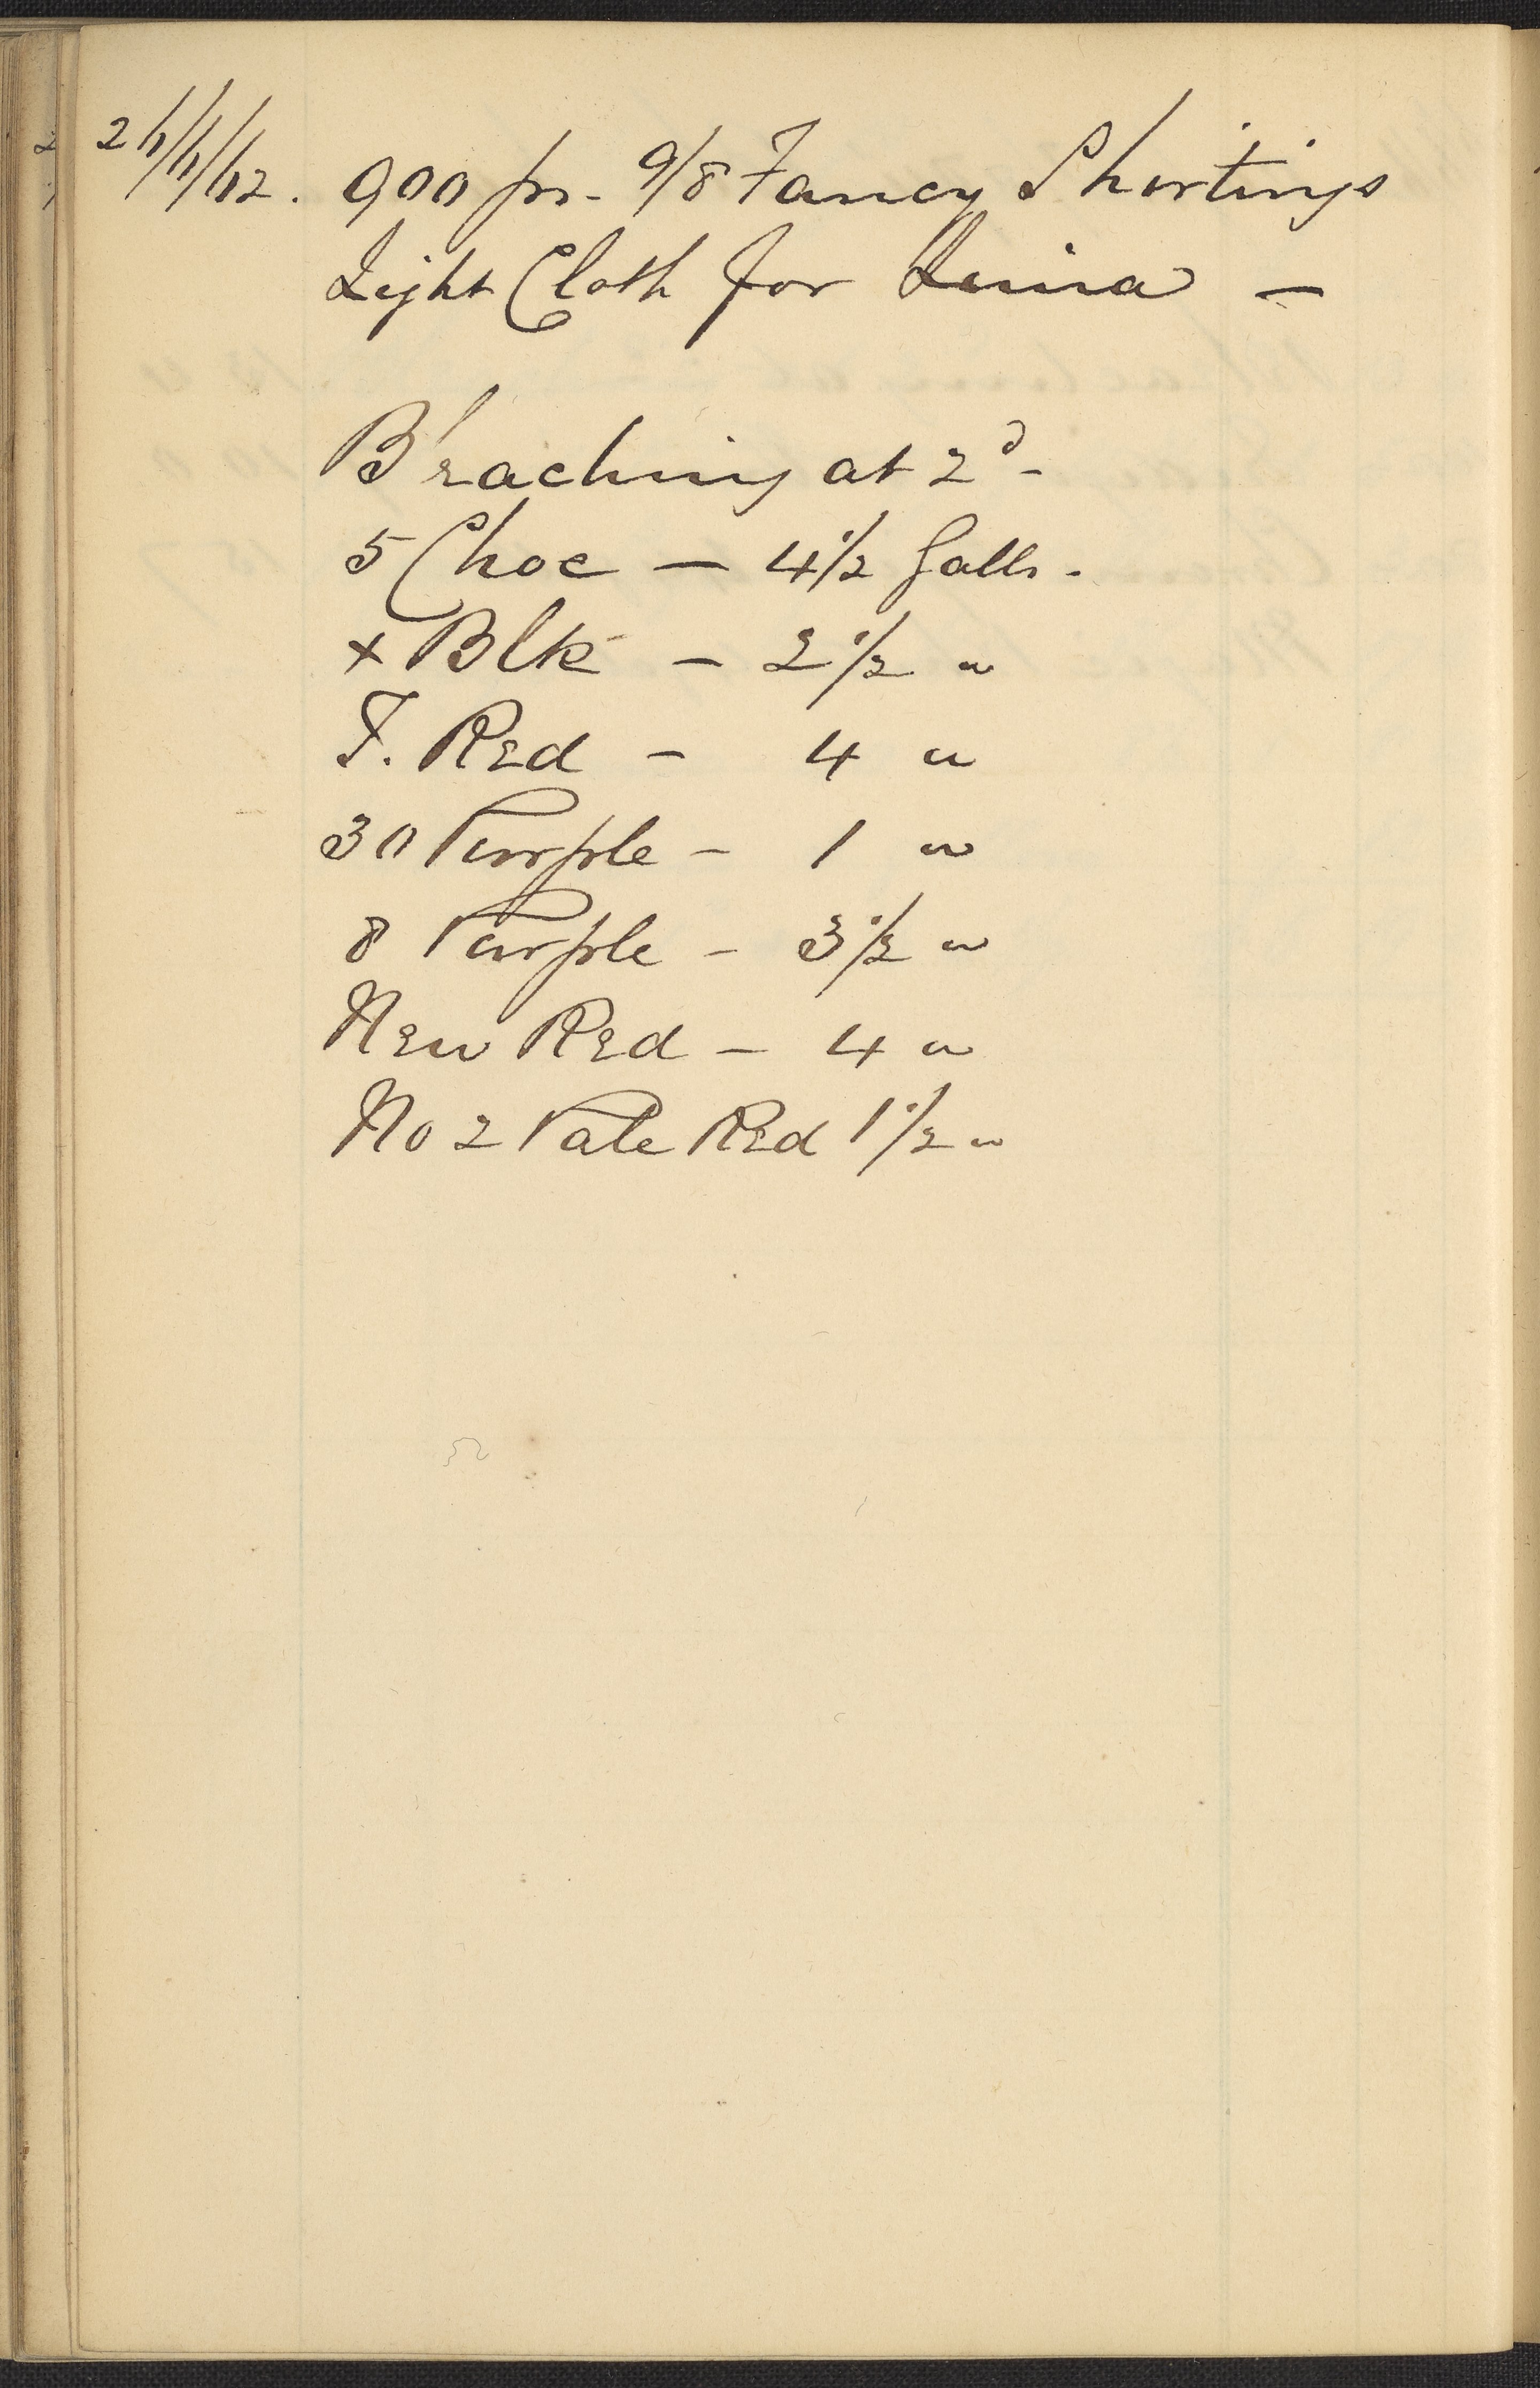 900 ps. 9/8 Fancy Shirtings
Light Cloth for
Bleaching at 2d -
5 Choc — 4 1/2 Galls.
+ Blk — 2 1/2 "
F. Red — 4 "
30 Purple — 1 "
8 Purple — 3 1/2 "
New Red — 4 "
No 2 Pale Red 1 1/2 "